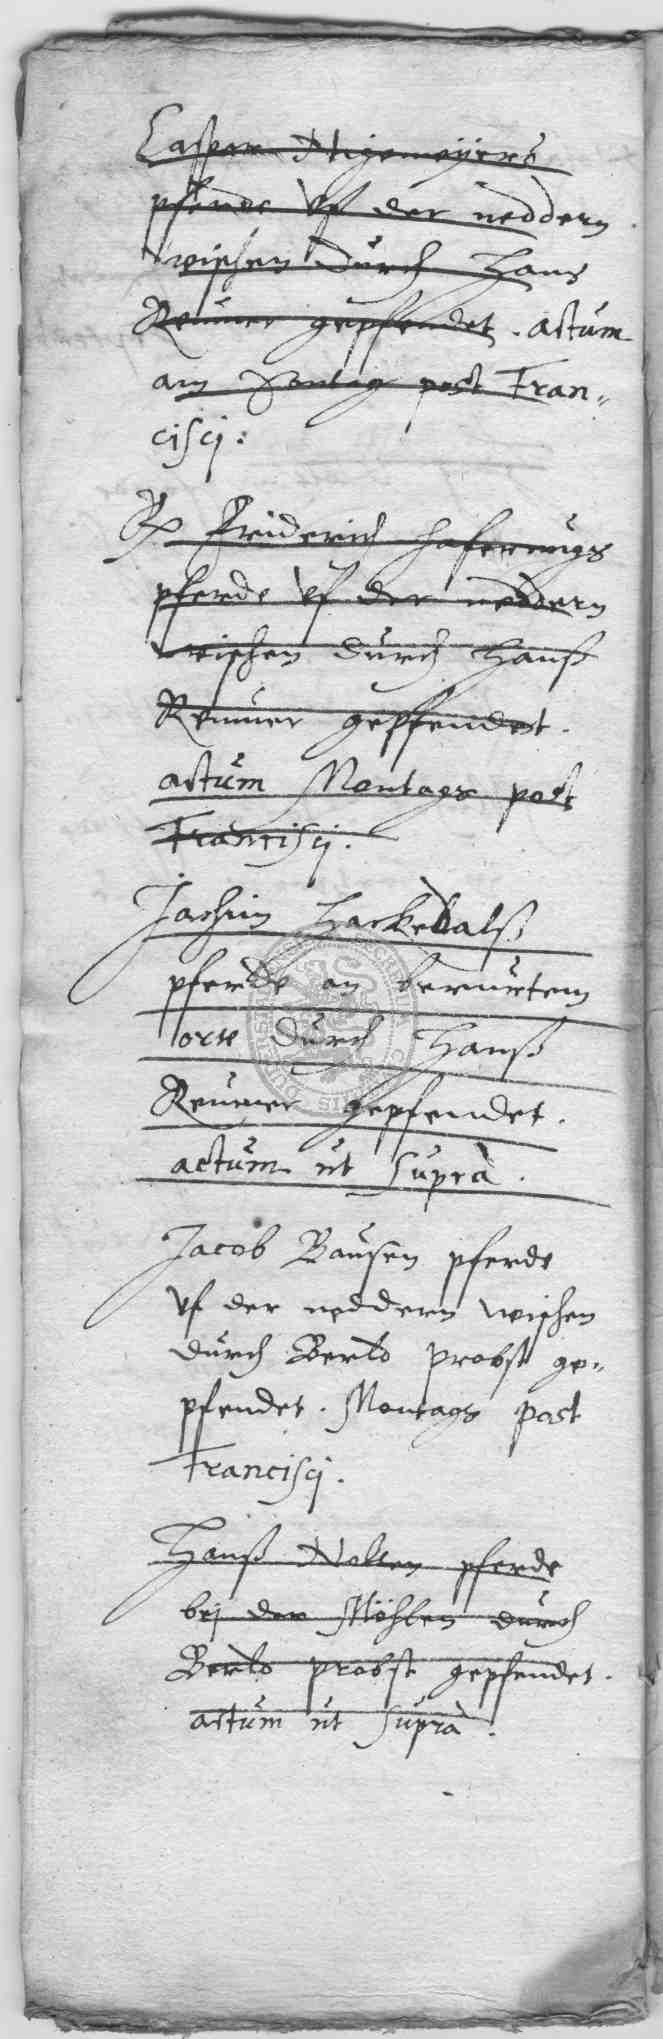 Caspar Nigemeÿers
pferde Vf der neddern
wischen durch Hans
Reumer gepfendet. actum
am Sontag post Fran-
cisci:
Friderich Hafernungs
pferde Vf der neddern
wischen durch Hanß
Reumer gepfendet.
actum Montags post
Francisci.
Jochim Hackebalß
pferde an berurtem
orte durch Hanß
Reumer gepfendet.
actum ut supra.
Jacob Bausen pferde
Vf der neddern wischen
durch Berld probst ge-
pfendet. Montags post
Francisci.
Hanß Nolten pferde
bej der Möhlen durch
Berld probst gepfendet.
actum ut supra.